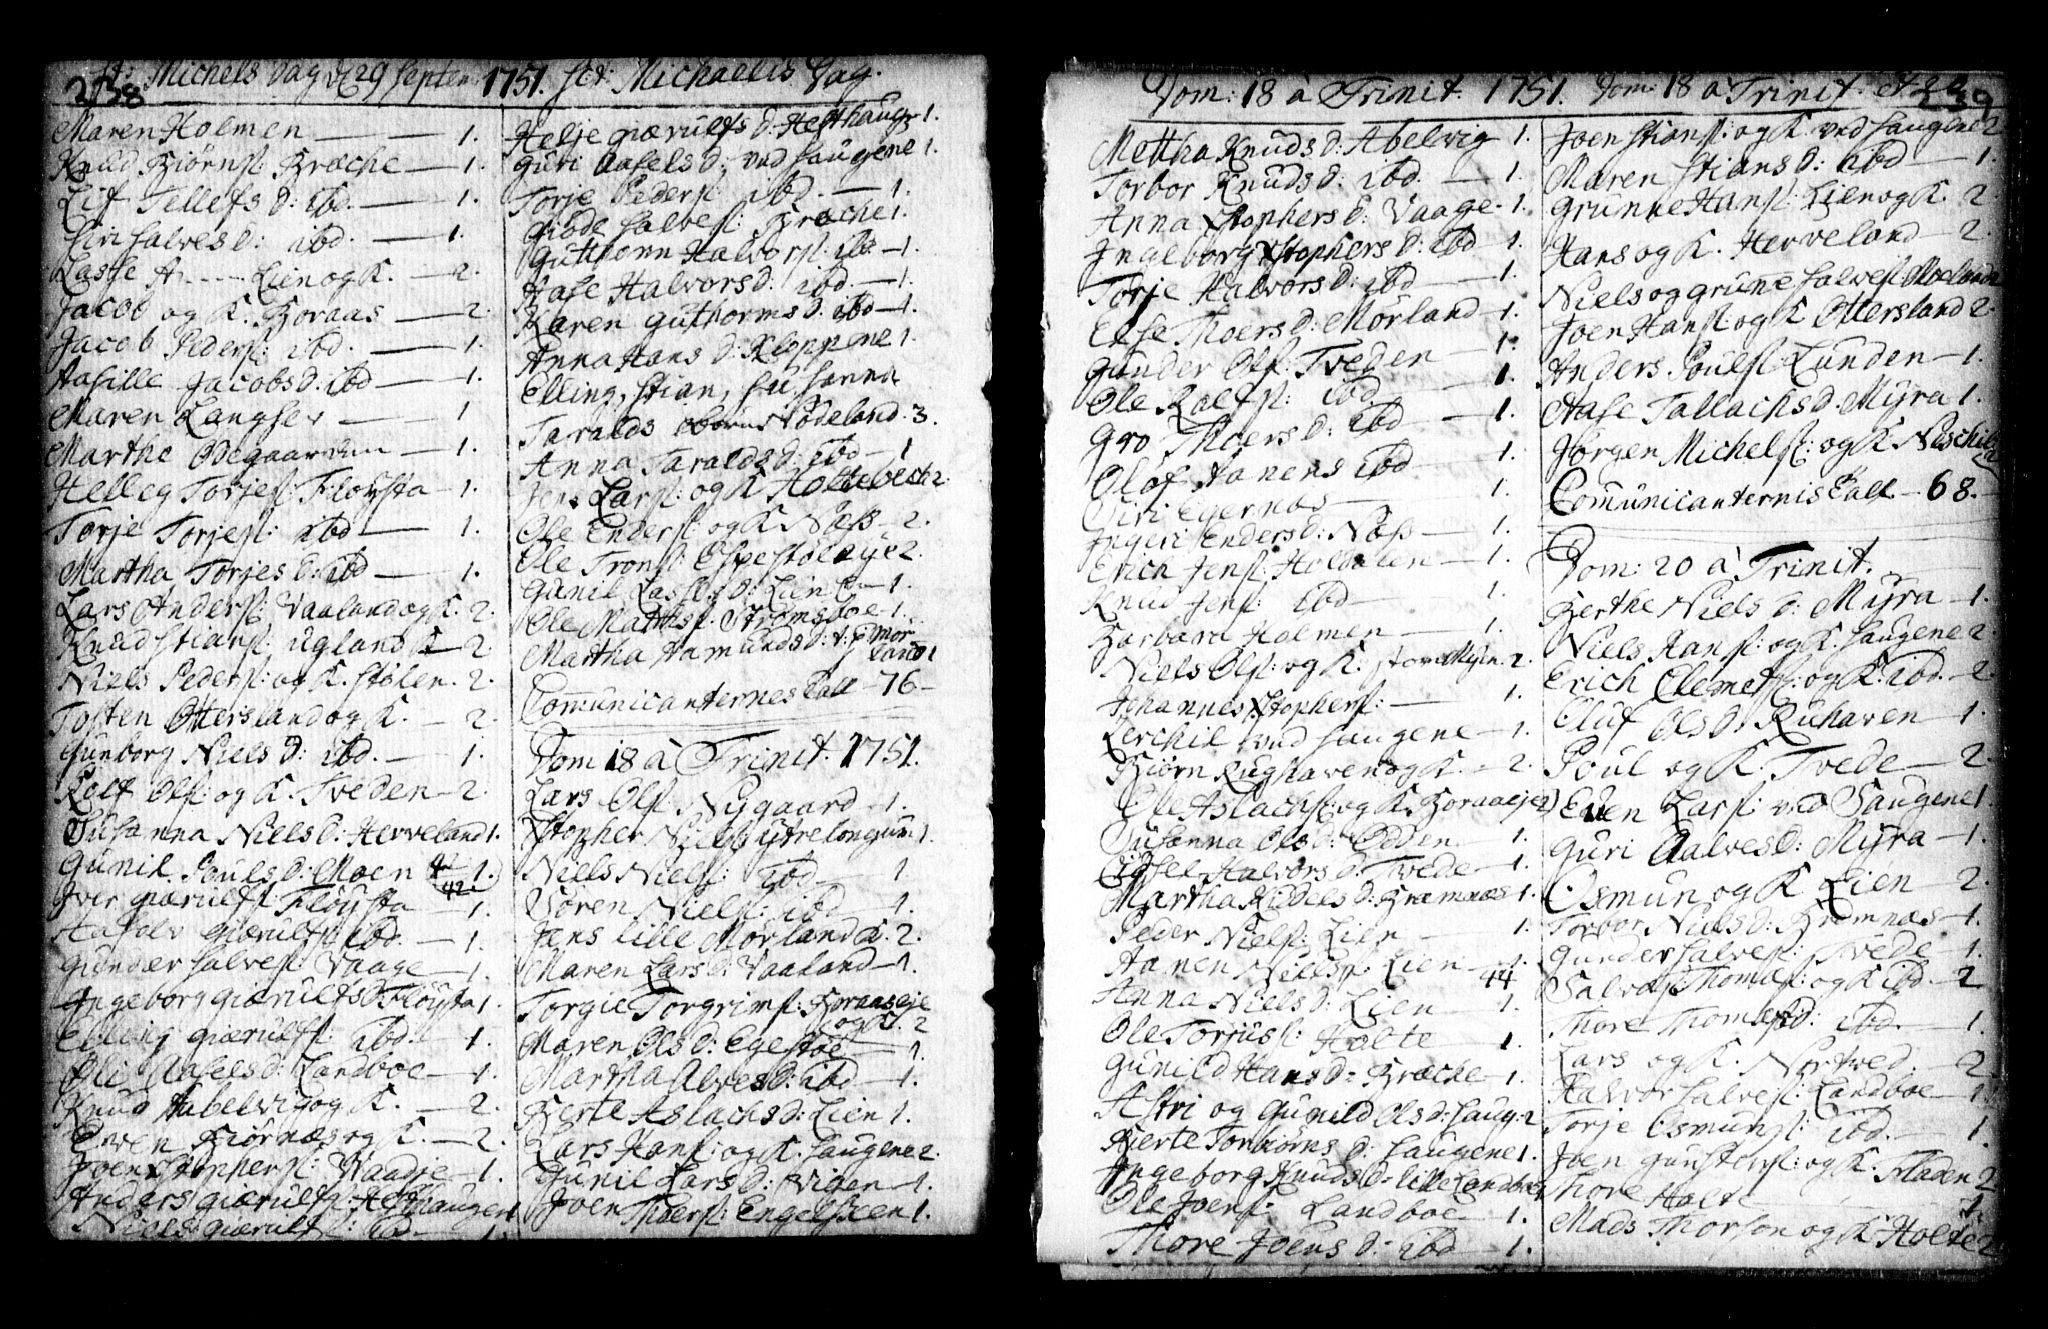 238
St: Michels Dag d 29 Septen: 1751. Sct: Michaelis Dag.
Maren Holmen — 1.
Knud Biörns: Bræche — 1.
Lif Tellefs D: ibd. — 1.
Siri Salves D: ibd. — 1.
Lasse A---- Lien og K. — 2.
Jacob og K. Boraas — 2.
Jacob Peders: ibd. — 1.
Aasille Jacobs D: ibd — 1.
Maren Langsev — 1
Marthe Odegaarden — 1.
Helleg Torjes: Fløysta — 1.
Torje Torjes: ibd — 1.
Martha Torjes D: ibd — 1.
Lars Anders: Vaaland og K. 2.
Knud Stians: Ugland K — 2.
Niels Peders: og K. Stølen. 2.
Tosten Ottersland og K. — 2.
Gunborg Niels D: ibd. — 1.
Rolf Ols: og K. Tveden — 2.
Susanna Niels D: Herveland 1.
Gunil Pouls D: Moen 1.
42
Iver Giærulfs: Fløysta — 1.
Giærulfs: ibd. — 1.
Gunder Salves: Vaage — 1.
Ingeborg Giærulfs D: Fløysta 1.
Elling Giærulfs: ibd. — 1.
Oli Aasels D: Landboe — 1.
Knud Aabelvig og K. — 2.
Even Biörnæs og K. — 2.
Joen Xstophers: Vaadje — 1.
Anders Giærulfs: Hesthaugen 1
Niels Giærulfs: ibd — 1.
Helje Giærulfs D: Hesthaug 1.
Guri Aasels D: ved Haugene 1.
Torje Peders: ibd. — 1.
Giøde Salves: Bræche 1.
Gutthorm Halvors: ibd — 1.
Aase Halvors D: ibd. — 1.
Karen Guthorms D: ibd — 1.
Anna Hans D: Kloppene 1.
Elling, Stian, Susanna
Taralds børn Nødeland. 3.
Anna Taralds D: ibd — 1
Jens Lars: og K Holtebech 2.
Ole Enders: og K Næss — 2.
Ole Trons: Espestøl 2.
Gunil Lasses D: Lien — 1.
Ole Mathis: Strømsboe 1.
Martha Aamunds D: Mør
land 1
Communicanternes Tall — 76 —
Dom 18 à Trinit. 1751.
Lars Ols: Nygaard — 1.
Xstopher Niels: ytre longum 1.
Niels Niels: ibd — 1
Søren Niels: ibd — 1.
Jens lille Mørland K. 2.
Maren Lars D: Vaaland — 1.
Torgie Torgrims: Boraaseje
og K. 2
Maren Ols D: Egestøe — 1.
Martha Alves D: ibd — 1.
Berte Aslachs D: Lien 1.
Lars Hans: og K. Haugene 2.
Gunil Lars D: Vigen — 1.
Joen Thoers: Engelsteen 1.
Dom: 18 à Trinit. 1751. Dom: 18 à Trinit. et 20
239
Mettha Knuds D: Abelvig 1.
Torbor Knuds D: ibd. — 1.
Anna Xstophers D: Vaage. 1.
Ingeborg Xstophers D: ibd — 1.
Torje Halvors D: ibd — 1.
Else Thoers D: Mørland — 1.
Gunder Ols: Tveden — 1.
Ole Rolfs: ibd — 1.
Gro Thoers D: ibd — 1.
Olof Aanens ibd — 1.
Siri Egernæs — 1.
Ingeri Enders D: Næss — 1.
Erich Jens: Holdalen — 1.
Knud Jens: ibd — 1.
Barbara Holmen — 1.
Niels Ols: og K. store 2.
Johannes Xstophers: — 1.
Kerchil ved Haugene — 1.
Biörn Rughaven og K. — 2.
Ole Aslachs: og K. Boraaseje 2
Susanna Ols D: — 1.
Halvors D: Tvede — 1.
Martha Kiddels D: Bræmnæs 1.
Peder Niels: Lien — 1.
Aanen Niels: Lien — 1
44
Anna Niels D: Lien — 1.
Ole Torjus: Holte — 1.
Gunild Hans D: Bræche — 1.
Astri og Gunild Ols D: Haug: 2
Berte Torbiörns D: Haugene 1.
Ingeborg Knuds D: lille Landboe 1
Ole Joens: Landboe — 1.
Thore Joens D: ibd — 1.
Joen Stians: og K ved Haugene 2
Maren Stians D: ibd — 1.
Grunne Hans: Lien og K. 2.
Hans og K. Herveland — 2.
Niels og Grunne Salves: Moeland 2
Joen Hans: og K Ottersland 2.
Anders Pouls: Lunden — 1.
Aase Tallachs D: Myra 1.
Jørgen Michels: og K
Comunicanternis Tall — 68. —
Dom: 20 à Trinit.
Berthe Niels D: Myra — 1.
Niels Hans: og K. Haugene 2.
Erich Clemets: og K. ibd. — 2.
Oluf Ols D: Ruhaven — 1.
Poul og K. Tvede — 2.
Even Lars: ved Haugene 1.
Guri Aalves D: Myra — 1.
Osmun og K Lien — 2.
Torbor Niels D: Bromnæs — 1.
Gunder Salves: Tvede — 1.
Salve Thomas: og K ibd. 2
Thore Thomes D: ibd. 1.
Lars og K. Nortved. — 2
Halvor Salves: Landboe — 1
Torje Osmuns: ibd. — 1.
Joen Gunsters: og K. Fladen 2
Thore Holte — 1.
Mads Thorson og K Holte 2